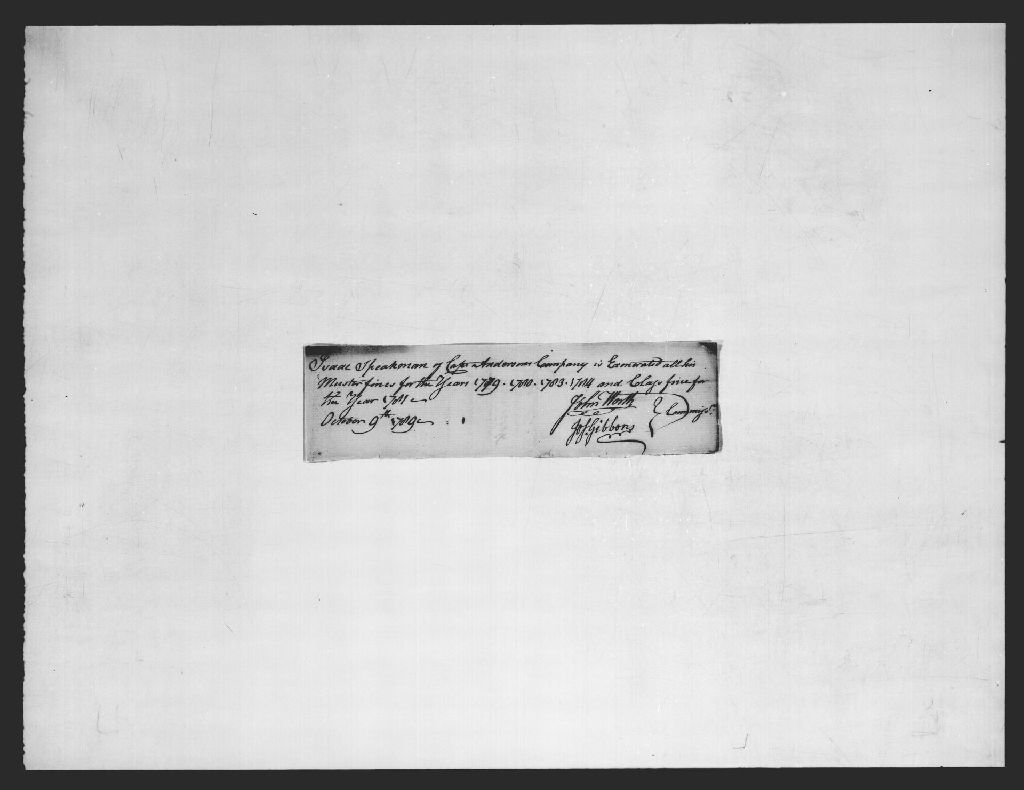 Isaac Speakman of Capt Andersons Company is Exonerated all his
Muster fines for the Years 1779. 1780. 1783. 1784 and Class fine for
the Year 1781
John Worth
October 9th 1789
Jos Gibbons
Commiss